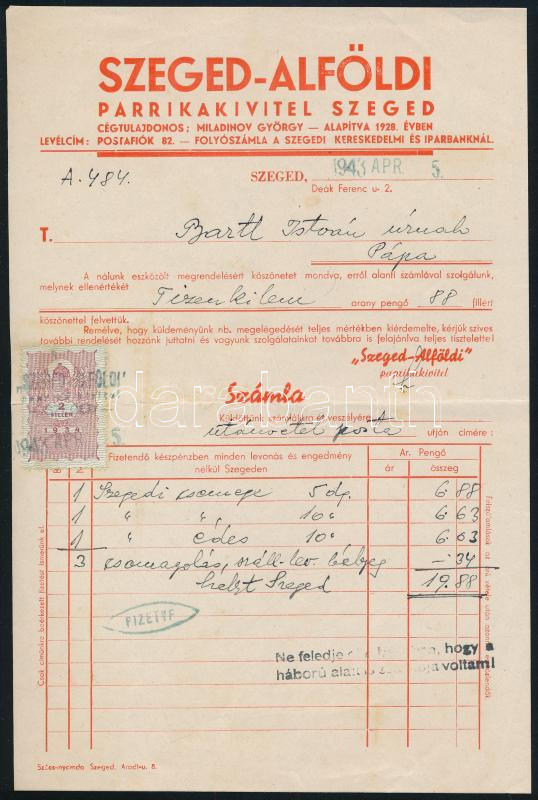 SZEGED-ALFÖLDI
PARRIKAKIVITEL SZEGED
CÉGTULAJDONOS; MILADINOV GYÖRGY — ALAPÍTVA 1928. ÉVBEN
LEVÉLCÍM: POSTAFIÓK 82. — FOLYÓSZÁMLA A SZEGEDI KERESKEDELMI ÉS IPARBANKNÁL.
A. 484.
SZEGED, 1943 APR 5.
Deák Ferenc u. 2.
T. Bartl István úrnak
Pápa
A nálunk eszközölt megrendelésért köszönetet mondva, erről alanti számlával szolgálunk,
melynek ellenértékét Tizenkilenc arany pengő 88 fillért
köszönettel felvettük.
Remélve, hogy küldeményünk nb. megelégedését teljes mértékben kiérdemelte, kérjük szíves
további rendelését hozzánk juttatni és vagyunk szolgálatainkat továbbra is felajánlva teljes tisztelettel
„Szeged-Alföldi"
paprikakivitel
2
FILLÉR
1934
1943 APR 5.
Számla
Küldöttünk számlájára és veszélyére
utánvétel posta utján címére:
Fizetendő készpénzben minden levonás és engedmény
nélkül Szegeden
Ár. Pengő
ár összeg
1 Szegedi csemege 5 dg. 6.88
1 " " 10 " 6.63
1 " édes 10 " 6.03
3 csomagolás, száll-lev. bélyeg —.34
helyt Szeged 19.88
FIZETVE
Ne feledje hogy a
háború alatt is voltam!
Csak címünkre beérkezett fizetést ismerünk el.
Szűcs-nyomda Szeged, Aradi-u. 8.
darabanth